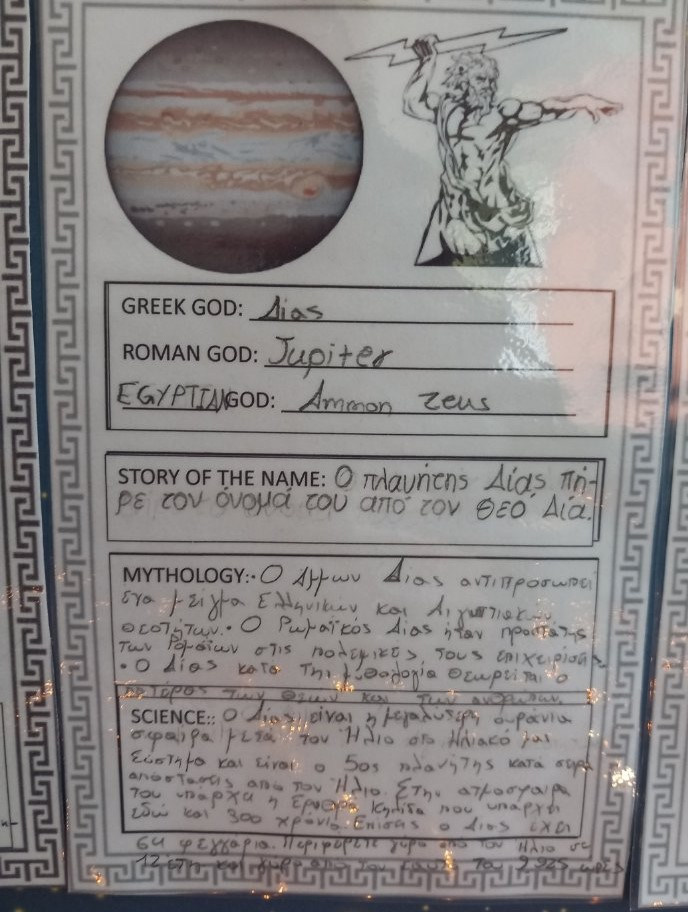 GREEK GOD: Δίας
ROMAN GOD: Jupiter
EGYPTIAN GOD: Ammon Zeus
STORY OF THE NAME: Ο πλανήτης Δίας πή-
ρε τον όνομά του από τον θεό Δία.
MYTHOLOGY: • Ο Άμμων Δίας αντιπροσωπεύει
ένα μείγμα Ελληνικών και Αιγυπτιακών
θεοτήτων. • Ο Ρωμαϊκός Δίας ήταν προστάτης
των Ρωμαίων στις πολεμικές τους επιχειρίσεις
• Ο Δίας κατά την μυθολογία θεωρείται ο
πατέρας των θεών και των ανθρώπων.
SCIENCE:: Ο Δίας είναι η μεγαλύτερη ουράνια
σφαίρα μετά τον Ήλιο στο Ηλιακό μας
Σύστημα και είναι ο 5ος πλανήτης κατά σειρά
απόστασης από τον Ήλιο. Στην ατμόσφαιρα
του υπάρχει η Ερυθρά Κηλίδα που υπάρχει
εδώ και 300 χρόνια. Επίσης ο Δίας έχει
64 φεγγάρια. Περιφέρετε γύρω από τον Ήλιο σε
12 έτη και γύρω από τον εαυτό του 9.925 ώρες